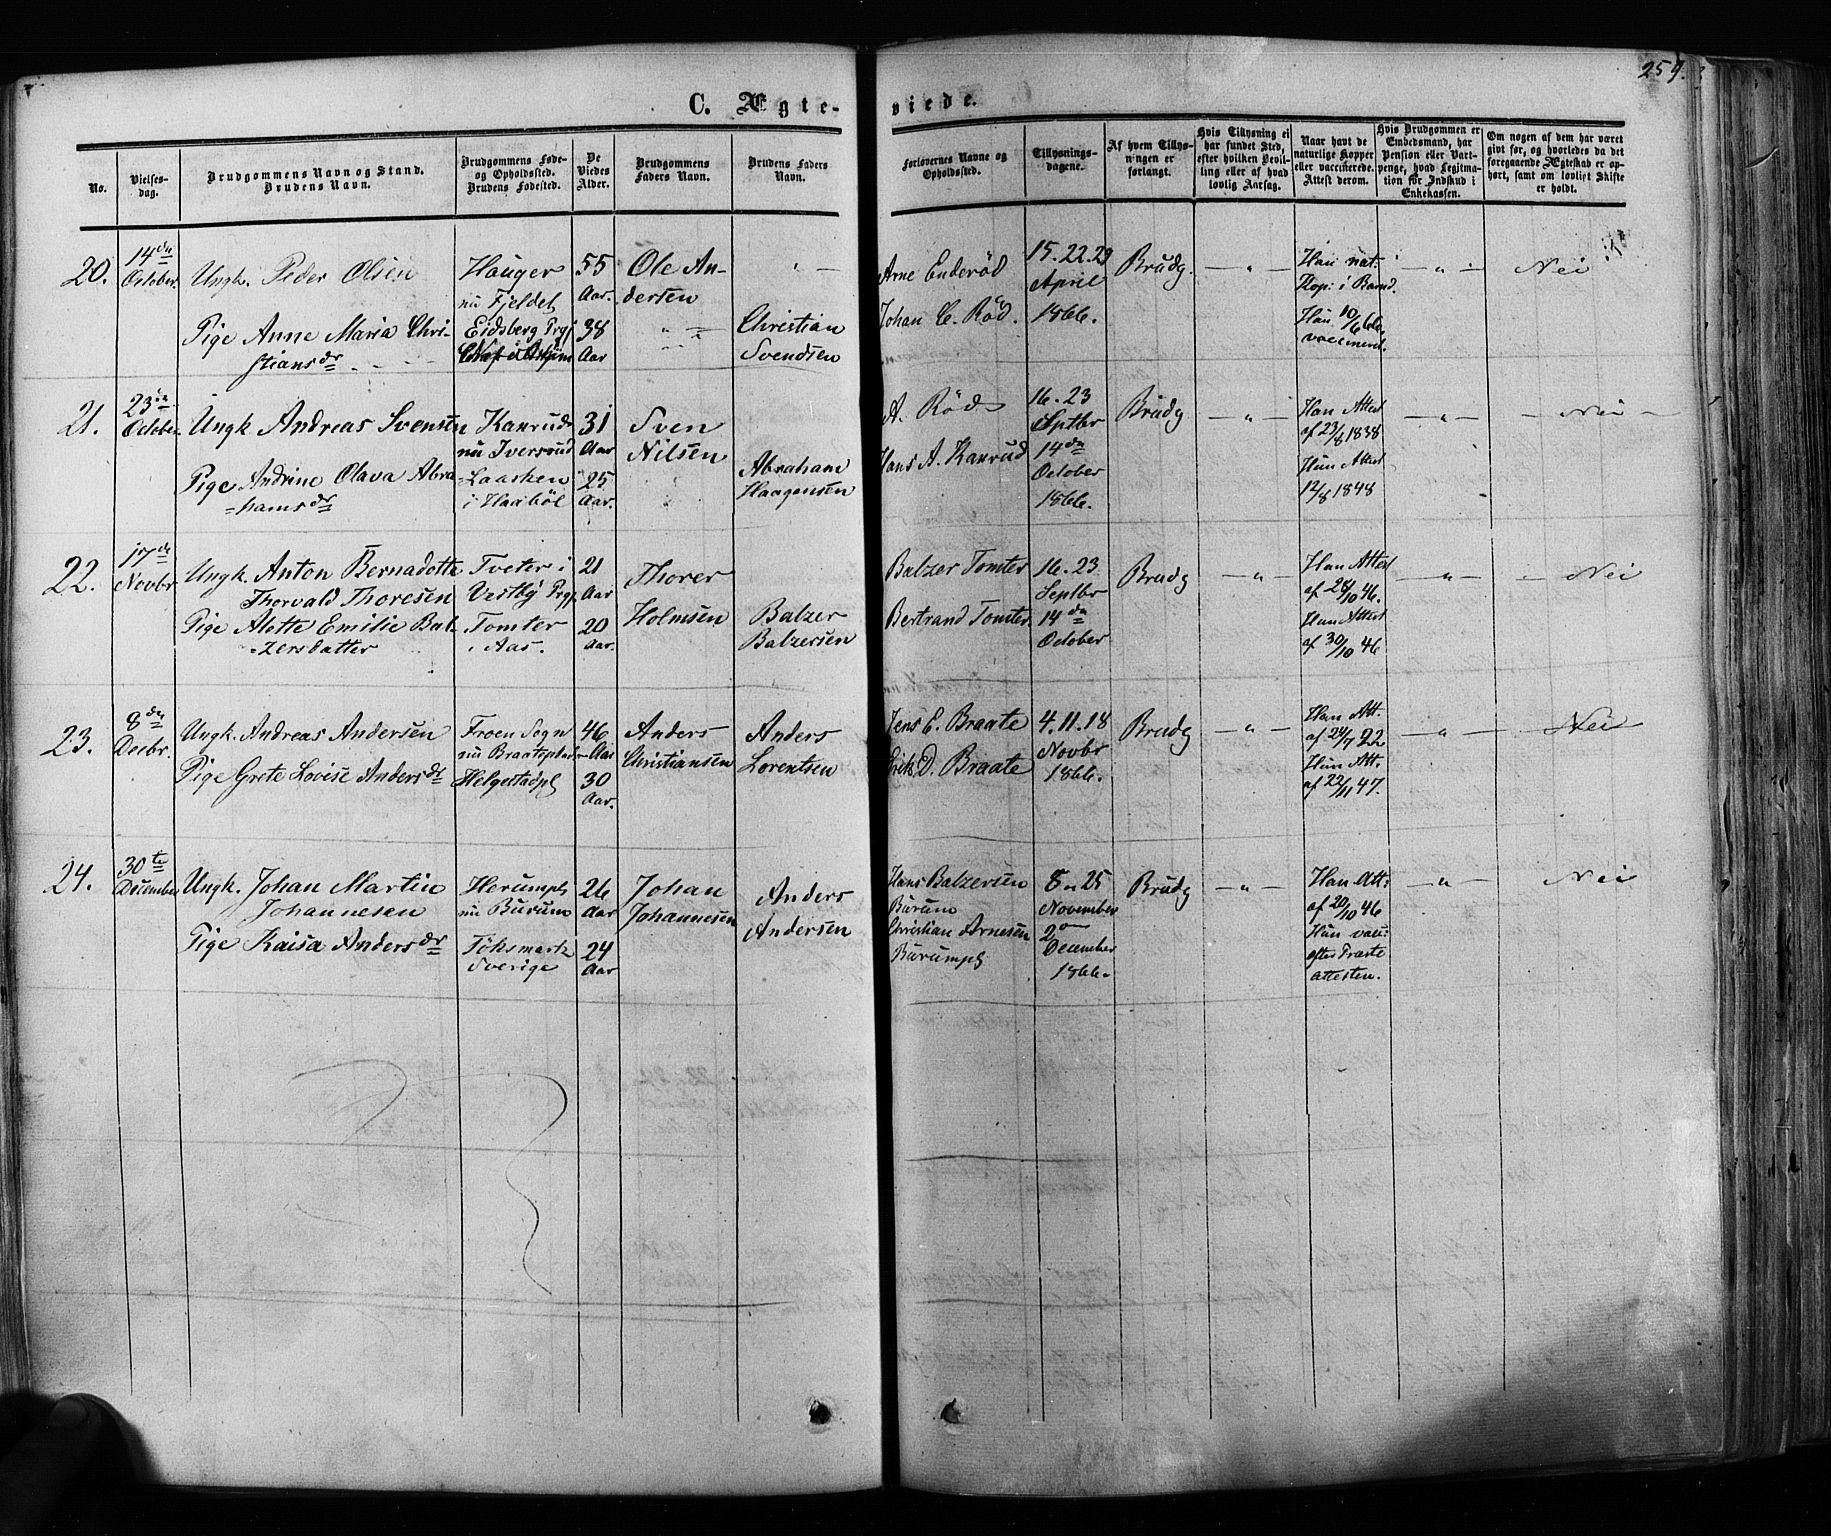 259.
C. Ægte-
viede.
No.
Vielses-
dag.
Brudgommens Navn og Stand.
Brudens Navn.
Brudgommens Føde-
og Opholdssted.
Brudens Fødested.
De
Viedes
Alder.
Brudgommens
Faders Navn.
Brudens Faders
Navn.
Forlovernes Navne og
Opholdssted.
Tillysnings-
dagene.
Af hvem Tillys-
ningen er
forlangt.
Hvis Tillysning ei
har fundet Sted,
efter hvilken Bevil-
ling eller af hvad
lovlig Aarsag.
Naar havt de
naturlige Kopper
eller vaccinerede.
Attest derom.
Hvis Brudgommen er
Embedsmand, har
Pension eller Vart-
penge, hvad Legitma-
tion for Indskud i
Enkekassen.
Om nogen af dem har været
gift før, og hvorledes da det
foregaaende Ægteskab er op-
hørt, samt om lovligt Skifte
er holdt.
20.
14de
October
Ungk. Peder Olsen
Pige Anne Maria Chri-
stiansdr
Hauger
nu Fjeldet
Eidsberg Prgj
55
Aar.
38
Aar
Ole An-
dersen
Christian
Svendsen
Arne Enderød
Johan C. Rød.
15. 22. 29
April
1866.
Brudg.
— " —
Han nat.
Kop: i Barnd.
Hun 10/6 66
vaccineret.
— " —
Nei
21.
23de
October
Ungk Andreas Svensen
Pige Andrine Olava Abra
-hamsdr
Kanrud
nu Iversrud
Laasken
i Haabøl
31
Aar
25
Aar.
Sven
Nilsen
Abraham
Haagensen
A. Rød
Hans A. Kanrud
16. 23
Septbr
14de
October
1866.
Brudg
— " —
Han Attest
af 23/8 1838
Hun Attest
12/8 1848
— " —
- Nei -
22.
17de
Novbr
Ungk. Anton Bernadotte
Thorvald Thoresen
Pige Alette Emilie Bal-
-zersdatter
Tveter i
Vestby Prgj
Tomter
i Aas.
21
Aar
20
Aar.
Thorer
Holmsen
Balzer
Balzersen
Balzer Tomter
Bertrand Tomter
16. 23
Septbr
14de
October
Brudg
— " —
Han Attest
af 28/10 46.
Hun Attest
af 30/10 46
— " —
- Nei
23.
8de
Decbr.
Ungk. Andreas Andersen
Pige Grete Lovise Andersdr
Froen Sogn
nu Braatepl
Helgestadpl
46
Aar
30
Aar.
Anders
Christiansen
Anders
Lorentsen
Jens E. Braate
Erik D. Braate
4. 11. 18
Novbr
1866.
Brudg
— " —
Han Att.
af 24/7 22
Hun Att.
af 22/11 47.
— " —
Nei
24.
30te
December
Ungk. Johan Martin
Johannesen
Pige Kaisa Andersdr
Herumpl
nu Burum
Töksmark
Sverige
26
Aar
24
Aar
Johan
Johannesen
Anders
Andersen
Hans Balzersen
Burum
Christian Arnesen
Burumpl
8 " 25
November
2den
December
1866.
Brudg
— " —
Han Att:
af 20/10 46
Hun vacc:
efter Præste
attesten.
— " —
Nei